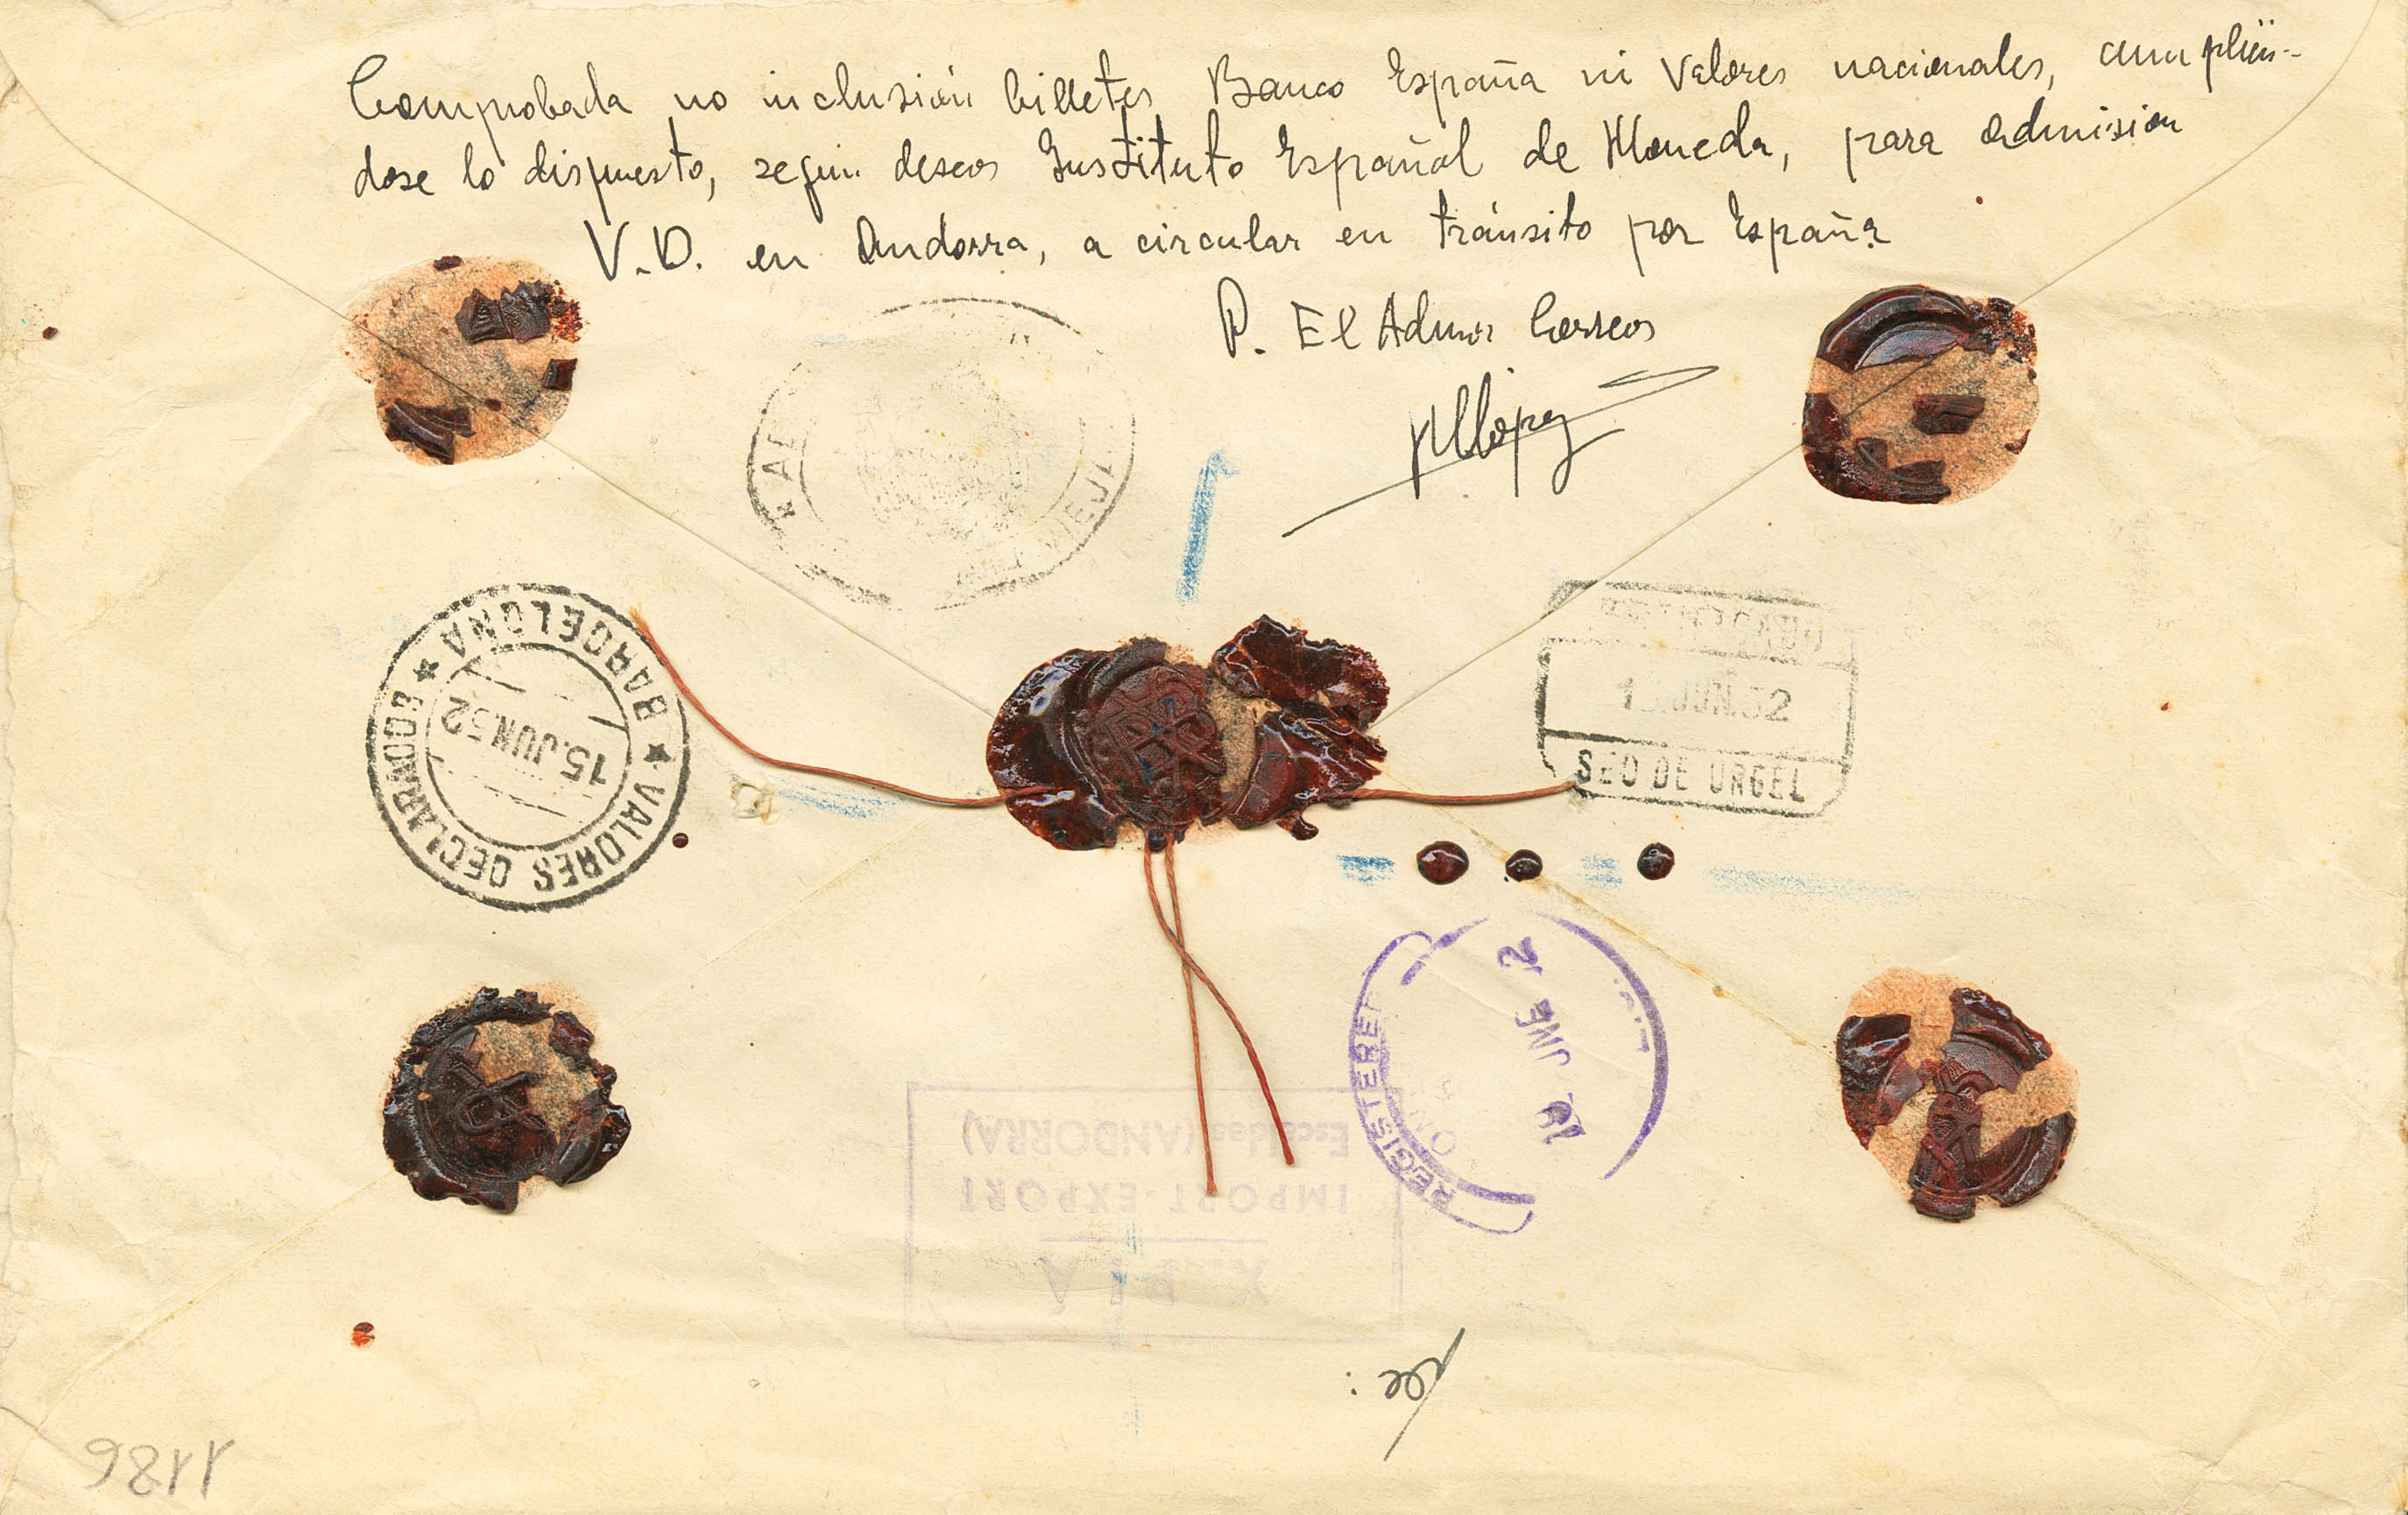 Comprobada no inclusión billetes Banco España ni Valores nacionales, cumplién-
dose lo dispuesto, según deseos Instituto Español de Moneda, para admisión
V.D. en Andorra, a circular en tránsito por España
P. El Admor Correos
BARCELONA ★ VALORES DECLARADOS ★
15.JUN.52
JUN.52
SEO DE URGEL
REGISTERED
JNE 2
X. PLA
IMPORT-EXPORT
Escaldes (ANDORRA)
1186